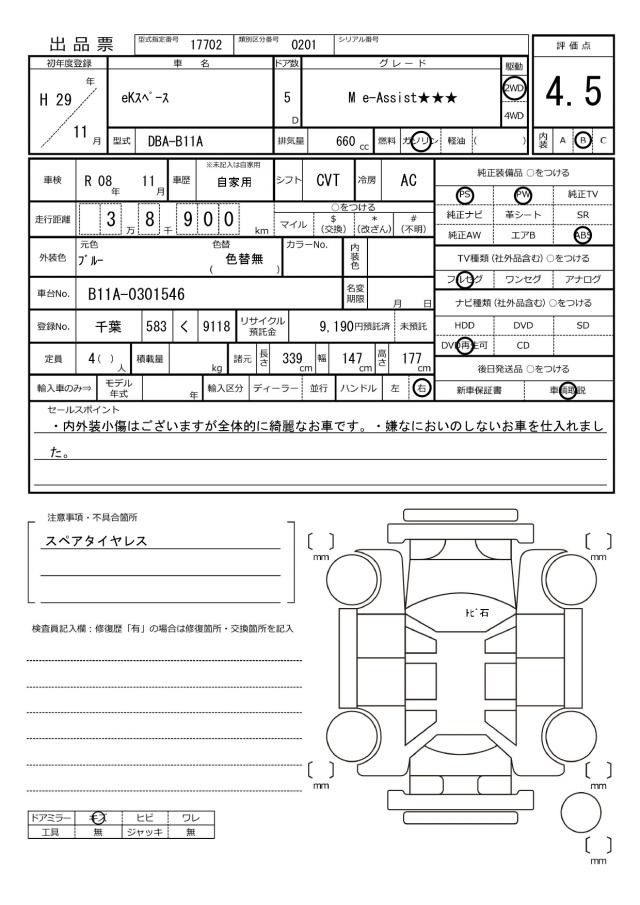 出品票 型式指定番号 17702 類別区分番号 0201 シリアル番号
評価点
4.5
内装 A B C
初年度登録 車名 ドア数 グレード 駆動
H 29 年 11 月
eKスペース 5 D M e-Assist★★★ 2WD 4WD
型式 DBA-B11A 排気量 660 cc 燃料 ガソリン 軽油 ( )
車検 R 08 年 11 月 車歴 ※未記入は自家用 自家用 シフト CVT 冷房 AC
走行距離 3 8 900 万 千 km
○をつける
マイル $(交換) *(改ざん) #(不明)
外装色 元色 ブルー 色替 ( 色替無 ) カラーNo. 内装色
車台No. B11A-0301546 名変期限 月 日
登録No. 千葉 583 く 9118 リサイクル預託金 9,190円預託済 未預託
定員 4( ) 人 積載量 kg 諸元 長さ 339 cm 幅 147 cm 高さ 177 cm
輸入車のみ⇒ モデル年式 年 輸入区分 ディーラー 並行 ハンドル 左 右
純正装備品 ○をつける
PS PW 純正TV
純正ナビ 革シート SR
純正AW エアB ABS
TV種類 (社外品含む) ○をつける
フルセグ ワンセグ アナログ
ナビ種類 (社外品含む) ○をつける
HDD DVD SD
DVD再生可 CD
後日発送品 ○をつける
新車保証書 車輌取説
セールスポイント
・内外装小傷はございますが全体的に綺麗なお車です。・嫌なにおいのしないお車を仕入れまし
た。
注意事項・不具合箇所
スペアタイヤレス
検査員記入欄：修復歴「有」の場合は修復箇所・交換箇所を記入
ドアミラー キズ ヒビ ワレ
工具 無 ジャッキ 無
〔 〕 mm
〔 〕 mm
トビ石
〔 〕 mm
〔 〕 mm
〔 〕 mm